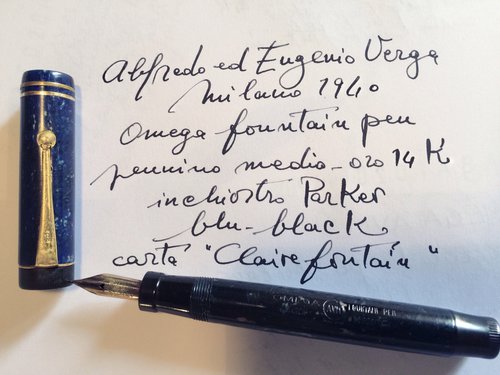 Alfredo ed Eugenio Verga
Milano 1940
Omega fountain pen
pennino medio - oro 14 K
inchiostro Parker
blu-black
carta "Clairefontain"
OMEGA
FOUNTAIN PEN